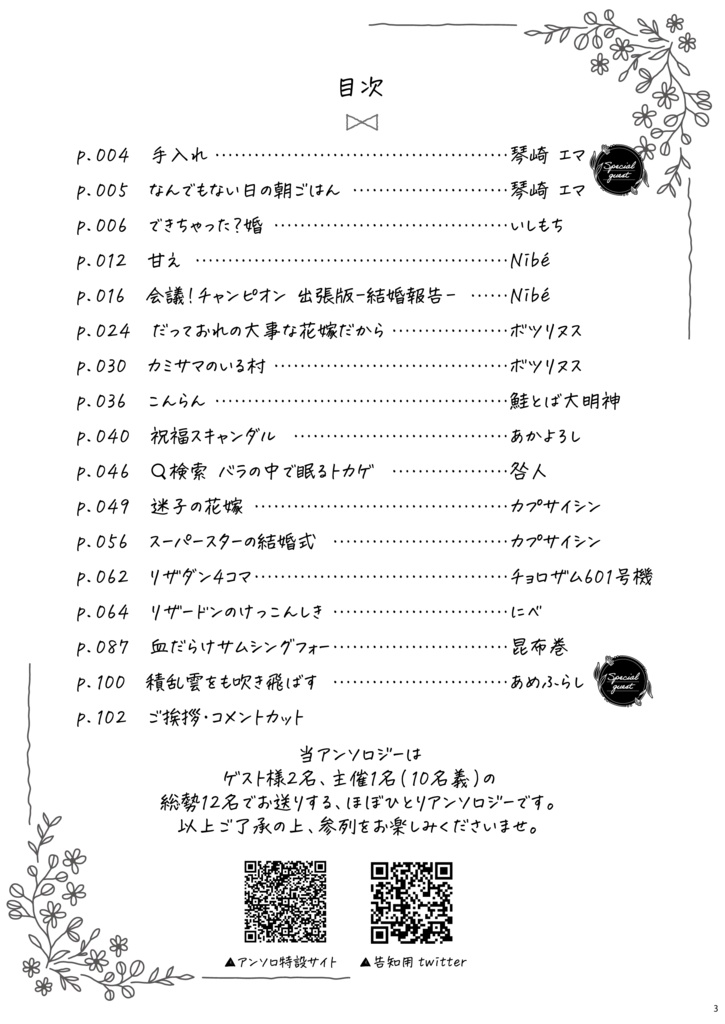 目次
p.004 手入れ ・・・・・・・・・・・・・・・・・・ 琴崎 エマ
Special guest
p.005 なんでもない日の朝ごはん ・・・・・・・・・・・・ 琴崎 エマ
p.006 できちゃった?婚 ・・・・・・・・・・・・・・・・ いしもち
p.012 甘え ・・・・・・・・・・・・・・・・・・ Nibé
p.016 会議!チャンピオン 出張版-結婚報告- ・・・・・・ Nibé
p.024 だっておれの大事な花嫁だから ・・・・・・・・・・・・ ボツリヌス
p.030 カミサマのいる村 ・・・・・・・・・・・・・・・・ ボツリヌス
p.036 こんらん ・・・・・・・・・・・・・・・・・・ 鮭とば大明神
p.040 祝福スキャンダル ・・・・・・・・・・・・・・・・ あかよろし
p.046 検索 バラの中で眠るトカゲ ・・・・・・・・・・ 咎人
p.049 迷子の花嫁 ・・・・・・・・・・・・・・・・・・ カプサイシン
p.056 スーパースターの結婚式 ・・・・・・・・・・・・ カプサイシン
p.062 リザダン4コマ ・・・・・・・・・・・・・・・・ チョロザム601号機
p.064 リザードンのけっこんしき ・・・・・・・・・・・・ にべ
p.087 血だらけサムシングフォー ・・・・・・・・・・・・ 昆布巻
p.100 積乱雲をも吹き飛ばす ・・・・・・・・・・・・ あめふらし
Special guest
p.102 ご挨拶・コメントカット
当アンソロジーは
ゲスト様2名、主催1名(10名義)の
総勢12名でお送りする、ほぼひとりアンソロジーです。
以上ご了承の上、参列をお楽しみくださいませ。
▲アンソロ特設サイト ▲告知用twitter
3